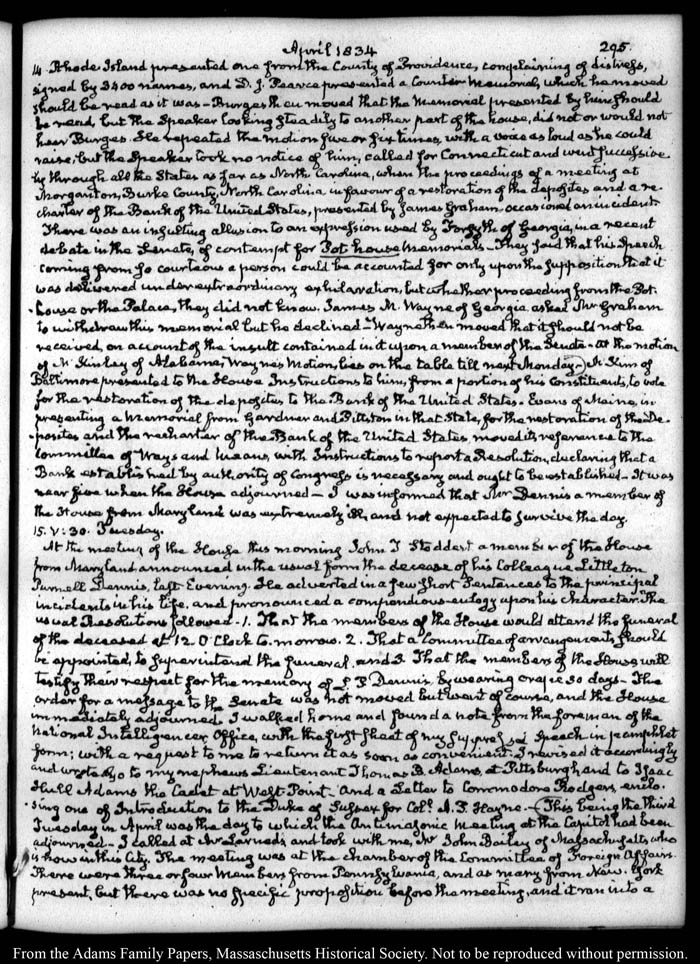 April 1834 295.
14. Rhode Island presented one from the County of Providence, complaining of distress,
signed by 3400 names, and D. J. Pearce presented a Counter Memorial, which he moved
should be read as it was – Burges then moved that the Memorial presented by him should
be read, but the Speaker looking steadily to another part of the house, did not or would not
hear Burges. He repeated the motion five or six times, with a voice as loud as he could
raise, but the Speaker took no notice of him, called for Connecticut and went successive-
ly through all the States as far as North Carolina, when the proceedings of a meeting at
Morganton, Burke County, North Carolina in favour of a restoration of the deposites and a re-
charter of the Bank of the United States, presented by James Graham occasioned an incident.
There was an insulting allusion to an expression used by Forsyth of Georgia, in a recent
debate in the Senate, of contempt for Pot house Memorials – They said that his Speech
coming from so courteous a person could be accounted for only upon the supposition that it
was delivered under extraordinary exhilaration, but whether proceeding from the Pot-
house or the Palace, they did not know. James M. Wayne of Georgia, asked Mr Graham
to withdraw this memorial but he declined – Wayne then moved that it should not be
received, on account of the insult contained in it upon a member of the Senate – at the motion
of Mc Kinley of Alabama, Wayne's Motion, lies on the table till next Monday – Heim of
Baltimore presented to the House Instructions to him, from a portion of his Constituents, to vote
for the restoration of the deposites to the Bank of the United States. Evans of Maine, in
presenting a Memorial from Gardner and Pittston in that State, for the restoration of the De-
posites and the recharter of the Bank of the United States moved its reference to the
Committee of Ways and Means, with Instructions to report a Resolution, declaring that a
Bank established by authority of Congress is necessary and ought to be established – It was
near five when the House adjourned – I was informed that Mr Dennis a member of
the House from Maryland was extremely ill, and not expected to survive the day.
15. V: 30. Tuesday.
At the meeting of the House this morning John T Stoddert a member of the House
from Maryland announced in the usual form the decease of his Colleague Littleton
Purnell Dennis, last Evening. He adverted in a few short Sentences to the principal
incidents in his life, and pronounced a compendious eulogy upon his character. The
usual Resolutions followed – 1. That the members of the House would attend the funeral
of the deceased at 12 O'Clock to-morrow. 2. That a Committee of arrangements should
be appointed, to superintend the funeral, and 3 That the members of the House, will
testify their respect for the memory of L P Dennis by wearing crape 30 days – The
order for a message to the Senate was not moved but went of course, and the House
immediately adjourned I walked home and found a note from the foreman of the
National Intelligencer Office, with the first sheet of my suppressed Speech in pamphlet
form; with a request to me to return it as soon as convenient. I revised it accordingly
and wrote also to my nephews Lieutenant Thomas B. Adams, at Pittsburgh, and to Isaac
Hull Adams the Cadet at West Point – And a Letter to Commodore Rodgers, enclo-
sing one of Introduction to the Duke of Sussex for Coll. A. P. Hayne. – This being the third
Tuesday in April was the day to which the Antimasonic Meeting at the Capitol had been
adjourned – I called at Mr Larned's and took with me, Mr John Bailey of Massachusetts, who
is now in this City. The meeting was at the chamber of the Committee of Foreign Affairs.
There were three or four Members from Pennsylvania, and as many from New-York
present, but there was no specific proposition before the meeting, and it ran into a
From the Adams Family Papers, Massachusetts Historical Society. Not to be reproduced without permission.